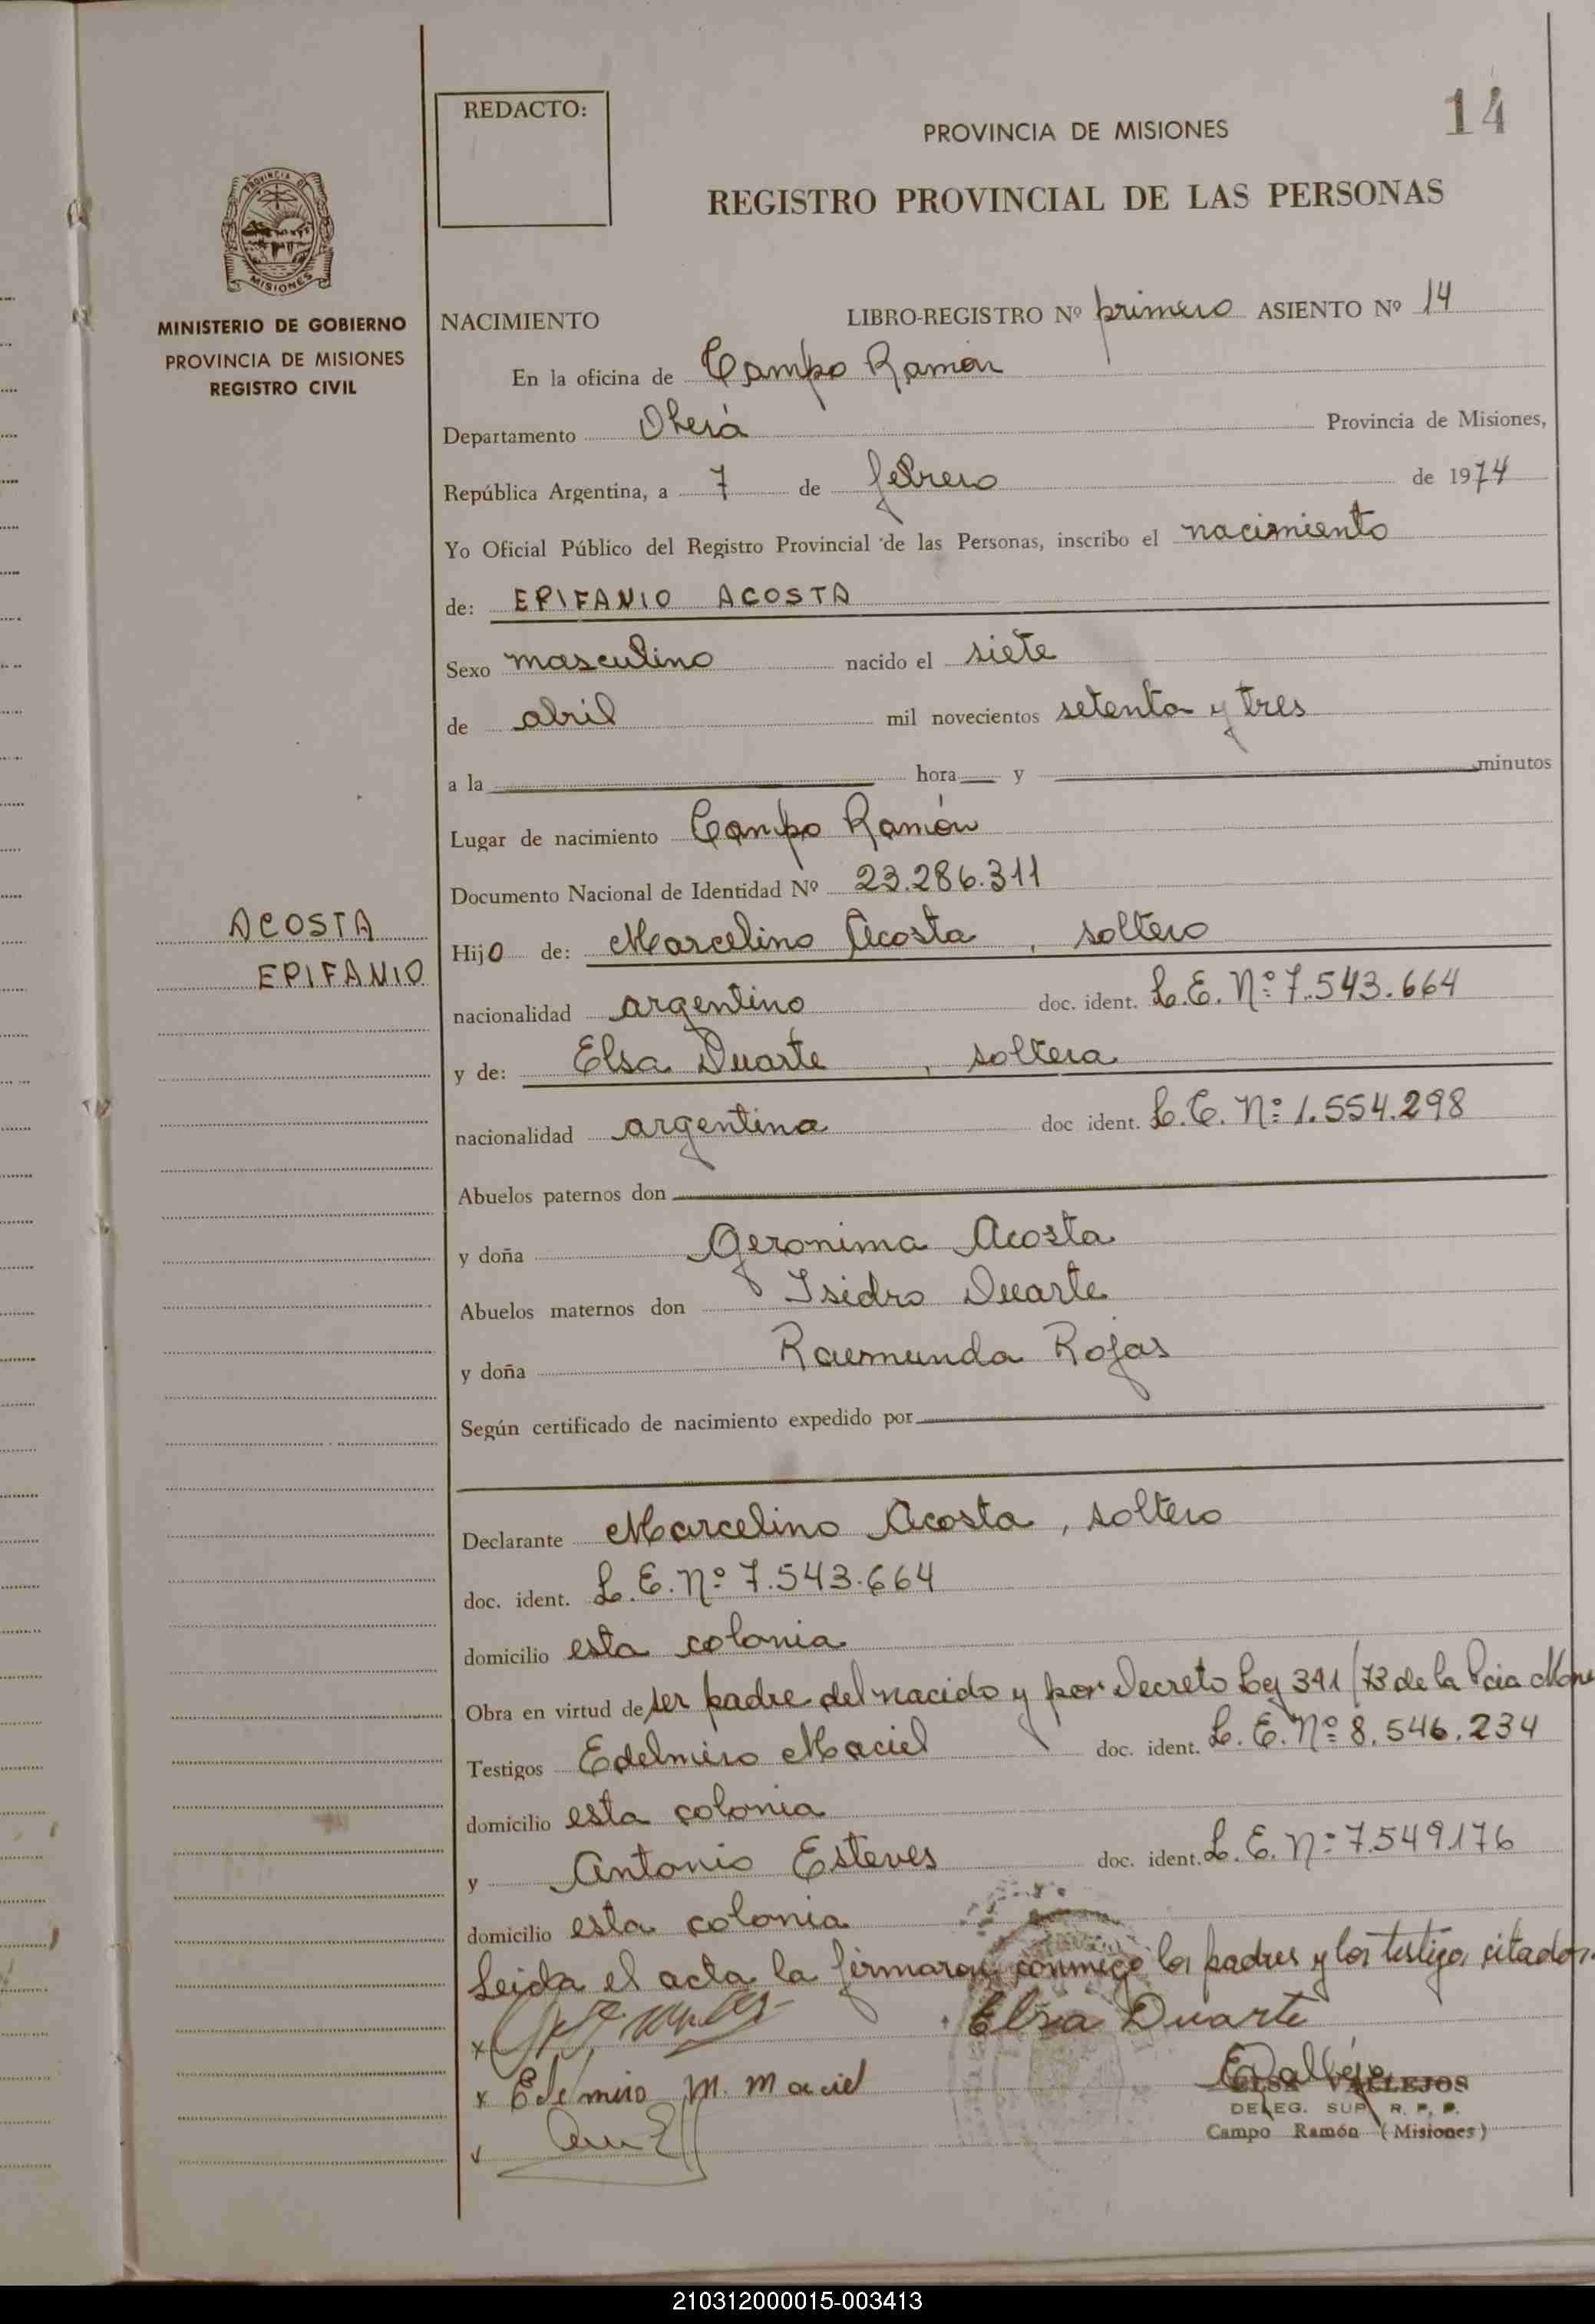 14
REDACTO:
PROVINCIA DE MISIONES
REGISTRO PROVINCIAL DE LAS PERSONAS
PROVINCIA DE
MISIONES
MINISTERIO DE GOBIERNO
PROVINCIA DE MISIONES
REGISTRO CIVIL
NACIMIENTO LIBRO-REGISTRO Nº primero ASIENTO Nº 14
En la oficina de Campo Ramón
Departamento Oberá Provincia de Misiones,
República Argentina, a 7 de febrero de 1974
Yo Oficial Público del Registro Provincial de las Personas, inscribo el nacimiento
de: EPIFANIO ACOSTA
Sexo masculino nacido el siete
de abril mil novecientos setenta y tres
a la hora y minutos
Lugar de nacimiento Campo Ramón
Documento Nacional de Identidad Nº 23.286.311
ACOSTA
EPIFANIO
Hijo de: Marcelino Acosta, soltero
nacionalidad argentino doc. ident. L.E. Nº 7.543.664
y de: Elsa Duarte, soltera
nacionalidad argentina doc ident. L.C. Nº 1.554.298
Abuelos paternos don
y doña Geronima Acosta
Abuelos maternos don Isidro Duarte
y doña Raemunda Rojas
Según certificado de nacimiento expedido por
Declarante Marcelino Acosta, soltero
doc. ident. L.E. Nº 7.543.664
domicilio esta colonia
Obra en virtud de ser padre del nacido y por Decreto Ley 341/73 de la Pcia
Testigos Edelmiro Maciel doc. ident. L.E. Nº 8.546.234
domicilio esta colonia
y Antonio Esteves doc. ident. L.E. Nº 7.549.176
domicilio esta colonia
Leida el acta la firmaron conmigo los padres y los testigos citados
Elsa Duarte
x Edelmiro M. Maciel
ELSA VALLEJOS
DELEG. SUP. R. P. P.
Campo Ramón (Misiones)
210312000015-003413